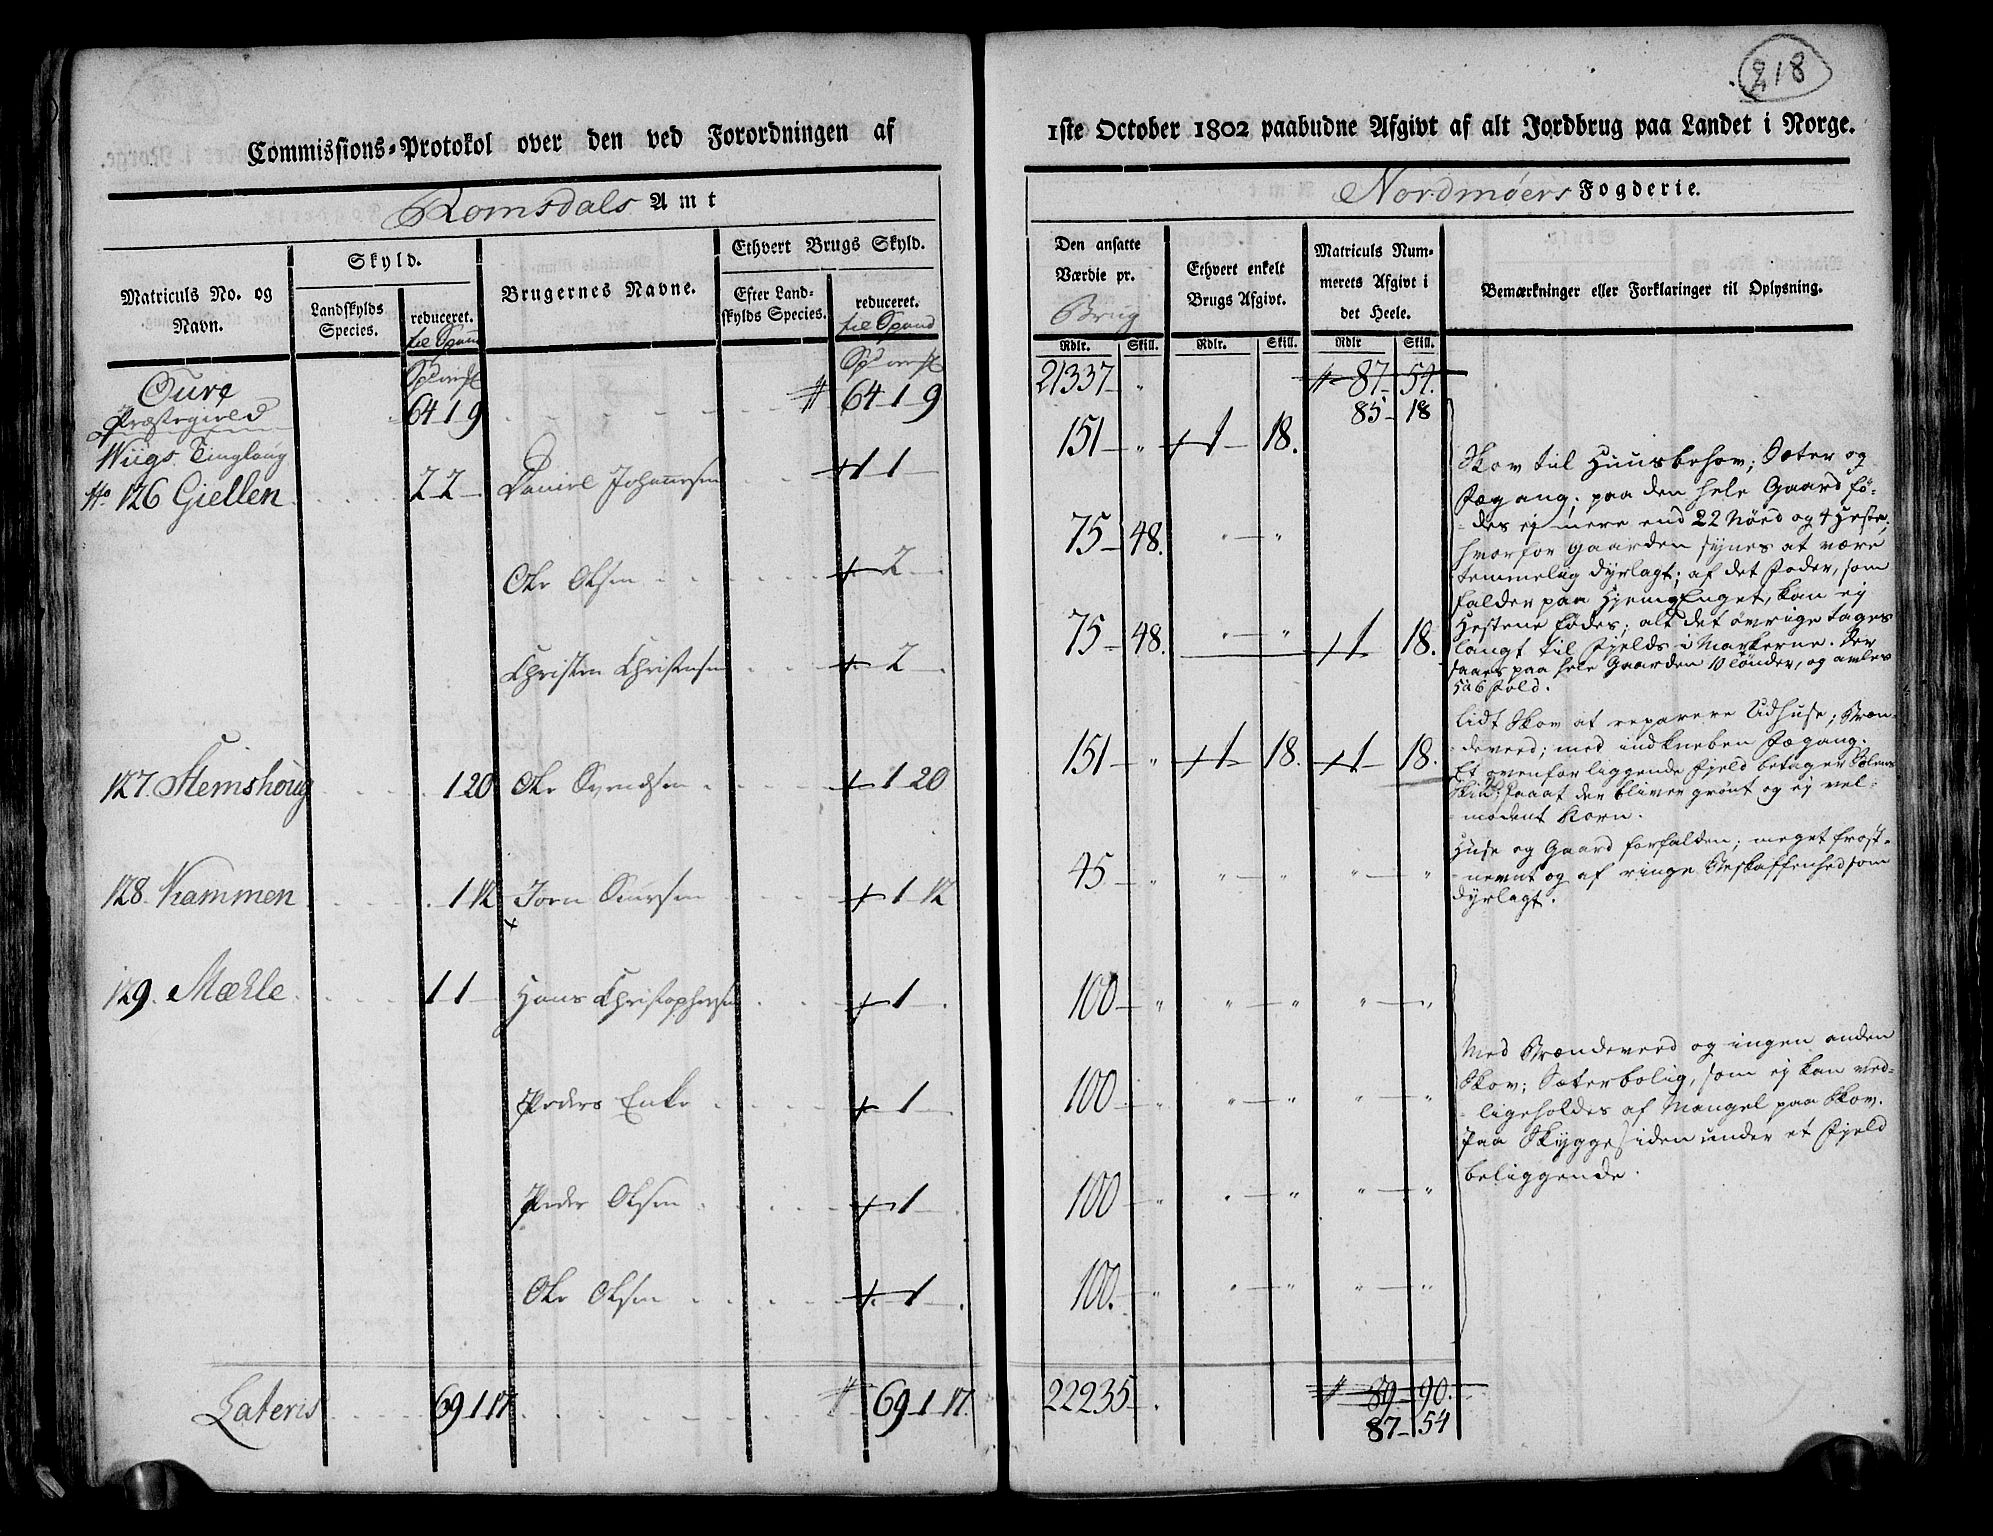 218
Commissions-Protokol over den ved Forordningen af
1ste October 1802 paabudne Afgivt af alt Jordbrug paa Landet i Norge.
Romsdals Amt
Nordmøers Fogderie.
Matriculs No. og Navn.
Skyld.
Landskylds Species.
reduceret. til Spand
Brugernes Navne.
Ethvert Brugs Skyld.
Efter Landskylds Species.
reduceret. til Spand
Den ansatte Værdie pr. Brug
Ethvert enkelt Brugs Afgivt.
Matriculs Nummerets Afgivt i det Heele.
Bemærkninger eller Forklaringer til Oplysning.
Rdlr. Skill. Rdlr. Skill. Rdlr Skill.
Oure Præstegield 64 1 9 64-1-9 21337 - " 87-54.
85-18
Wiigs Tinglaug
No 126 Giellen 2 2 - Daniel Johannesen 1 - 151 - " 1 - 18.
Ole Olsen 2 - 75-48. " - "
Christen Christensen 2 - 75-48. " - " 1 - 18.
Skov til Huusbehov; Sæter og
Fægang; paa den hele Gaard fø-
des ej mere end 22 Nöed og 4 Heste,
hvorfor gaarden synes at være
temmelig dyrlagt; af det Foder, som
falder paa HjemEnget, kan ej
Hestene fødes; alt det øvrige tages
langt til Fjelds i Markerne. Der
saaes paa hele Gaarden 10 tönder, og avles
5 a 6 fold.
127. Stemshoug 1 20 Ole Svendsen 1 20 151 - " 1 - 18. 1 - 18.
lidt Skov at reparere Udhuse; Bræn-
deveed; med indkneben Fægang.
Et ovenfor liggende Fjeld betager Solens
Skin, saaat der bliver grønt og ej vel-
modent Korn.
128. Kammen 1 12 Jorn Siversen 1-12 45 - " " - " " - "
Huse og Gaard forfalden; meget frost-
nemt og af ringe Beskaffenhed som
dyrlagt.
129. Mæhle 1 1 - Hans Christophersen 1 - 100 - " " - " " - "
Peders Enke 1 - 100 - " " - " " - "
Peder Olsen 1 - 100 - " " - " " - "
Ole Olsen 1 - 100. - " " - " " - "
Med Brændeveed og ingen anden
Skov; Sæterbolig, som ej kan ved-
ligeholdes af Mangel paa Skov.
Paa Skyggesiden under et Fjeld
beliggende.
Lateris 69 1 17. 69-1-17. 22235 - . 89-90.
87-54